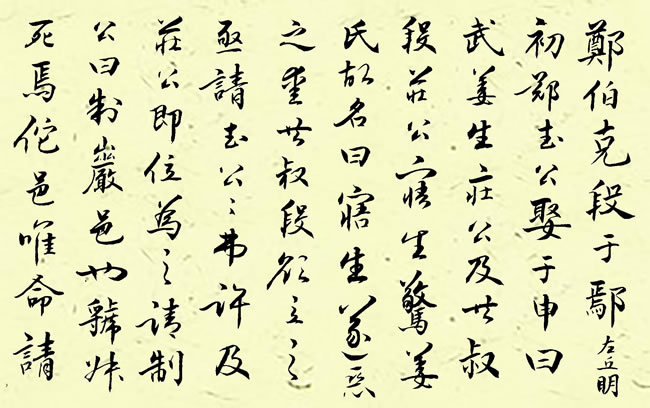 鄭伯克段于鄢 左丘明
初鄭武公娶于申曰
武姜生莊公及共叔
段莊公寤生驚姜
氏故名曰寤生遂惡
之愛共叔段欲立之
亟請武公〻弗許及
莊公即位為之請制
公曰制巖邑也虢叔
死焉佗邑唯命請